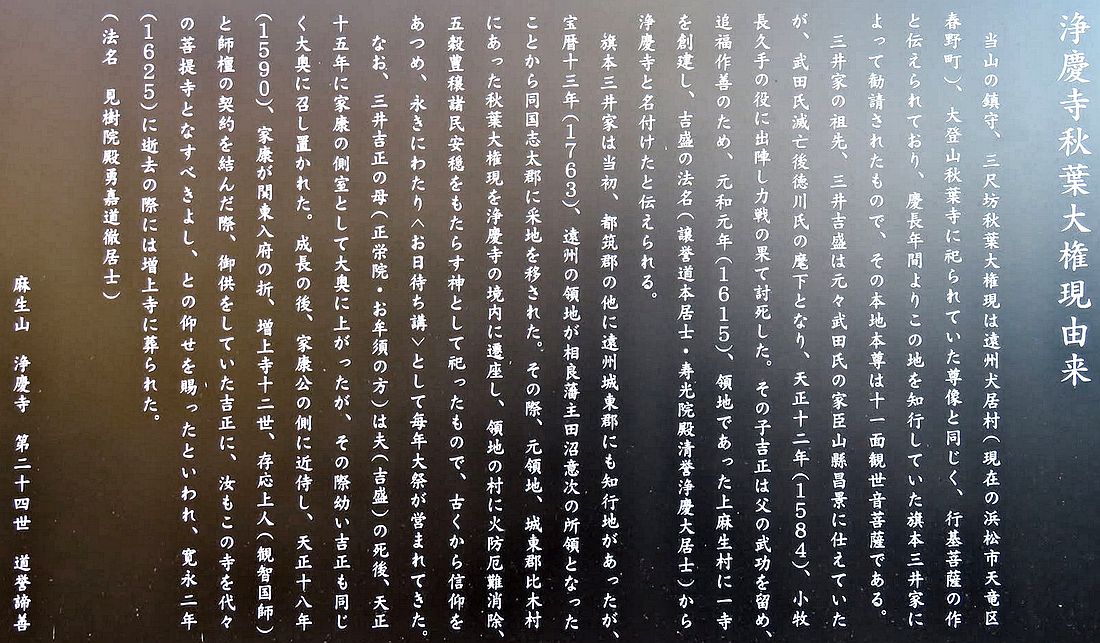 浄慶寺秋葉大権現由来
当山の鎮守、三尺坊秋葉大権現は遠州犬居村(現在の浜松市天竜区
春野町)、大登山秋葉寺に祀られていた尊像と同じく、行基菩薩の作
と伝えられており、慶長年間よりこの地を知行していた旗本三井家に
よって勧請されたもので、その本地本尊は十一面観世音菩薩である。
三井家の祖先、三井吉盛は元々武田氏の家臣山縣昌景に仕えていた
が、武田氏滅亡後徳川氏の麾下となり、天正十二年(1584)、小牧
長久手の役に出陣し力戦の果て討死した。その子吉正は父の武功を留め、
追福作善のため、元和元年(1615)、領地であった上麻生村に一寺
を創建し、吉盛の法名(譲誉道本居士・寿光院殿清誉浄慶大居士)から
浄慶寺と名付けたと伝えられる。
旗本三井家は当初、都筑郡の他に遠州城東郡にも知行地があったが、
宝暦十三年(1763)、遠州の領地が相良藩主田沼意次の所領となった
ことから同国志太郡に采地を移された。その際、元領地、城東郡比木村
にあった秋葉大権現を浄慶寺の境内に遷座し、領地の村に火防厄難消除、
五穀豊穣諸民安穏をもたらす神として祀ったもので、古くから信仰を
あつめ、永きにわたり〈お日待ち講〉として毎年大祭が営まれてきた。
なお、三井吉正の母(正栄院・お牟須の方)は夫(吉盛)の死後、天正
十五年に家康の側室として大奥に上がったが、その際幼い吉正も同じ
く大奥に召し置かれた。成長の後、家康公の側に近侍し、天正十八年
(1590)、家康が関東入府の折、増上寺十二世、存応上人(観智国師)
と師檀の契約を結んだ際、御供をしていた吉正に、汝もこの寺を代々
の菩提寺となすべきよし、との仰せを賜ったといわれ、寛永二年
(1625)に逝去の際には増上寺に葬られた。
(法名 見樹院殿勇嘉道徹居士)
麻生山 浄慶寺 第二十四世 道誉諦善